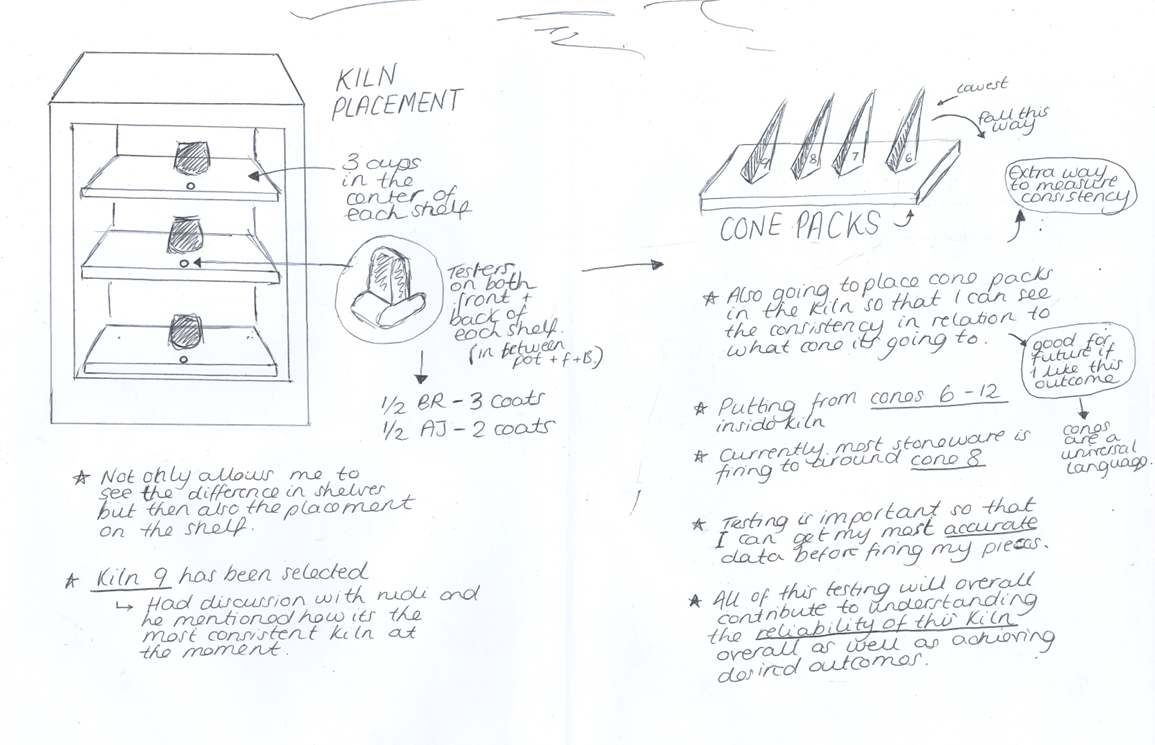 KILN
PLACEMENT
3 cups
in the
center of
each shelf
Testers
on both
front +
back of
each shelf.
(in between
pot + f + B.)
1/2 BR - 3 coats
1/2 AJ - 2 coats
* Not only allows me to
see the difference in shelves
but then also the placement
on the shelf.
* Kiln 9 has been selected
↳ Had discussion with rudi and
he mentioned how its the
most consistent kiln at
the moment.
9 8 7 6
Lowest
fall this
way
CONE PACKS
Extra way
to measure
consistency
* Also going to place cone packs
in the kiln so that I can see
the consistency in relation to
what cone its going to.
good for
future if
I like this
outcome
cones
are a
universal
language.
* Putting from cones 6 - 12
inside kiln
* Currently most stoneware is
firing to around cone 8
* Testing is important so that
I can get my most accurate
data before firing my pieces.
* All of this testing will overall
contribute to understanding
the reliability of this kiln
overall as well as achieving
desired outcomes.